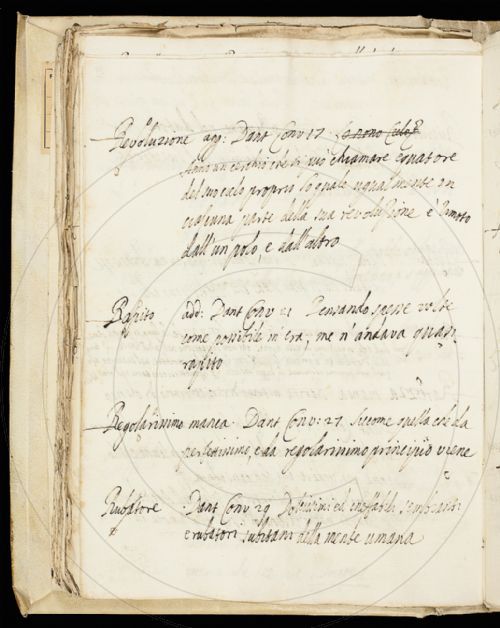 Revoluzione agg: Dant Conv 17
Anno un cerchio che si può chiamare equatore
del suo cielo proprio lo quale ugualmente in
ciascuna parte della sua revoluzione è rimoto
dall'un polo, e dall'altro
Rapito add: Dant Conv 21 Pensando spesse volte
come possibile m'era, me n'andava quasi
rapito
Regolarissimo manca. Dant Conv: 27 siccome quella che da
perfettissimo, e da regolarissimo principio viene
Rubatore :Dant Conv 29 Dolcissimi ed ineffabili sembianti
e rubatori subitani della mente umana